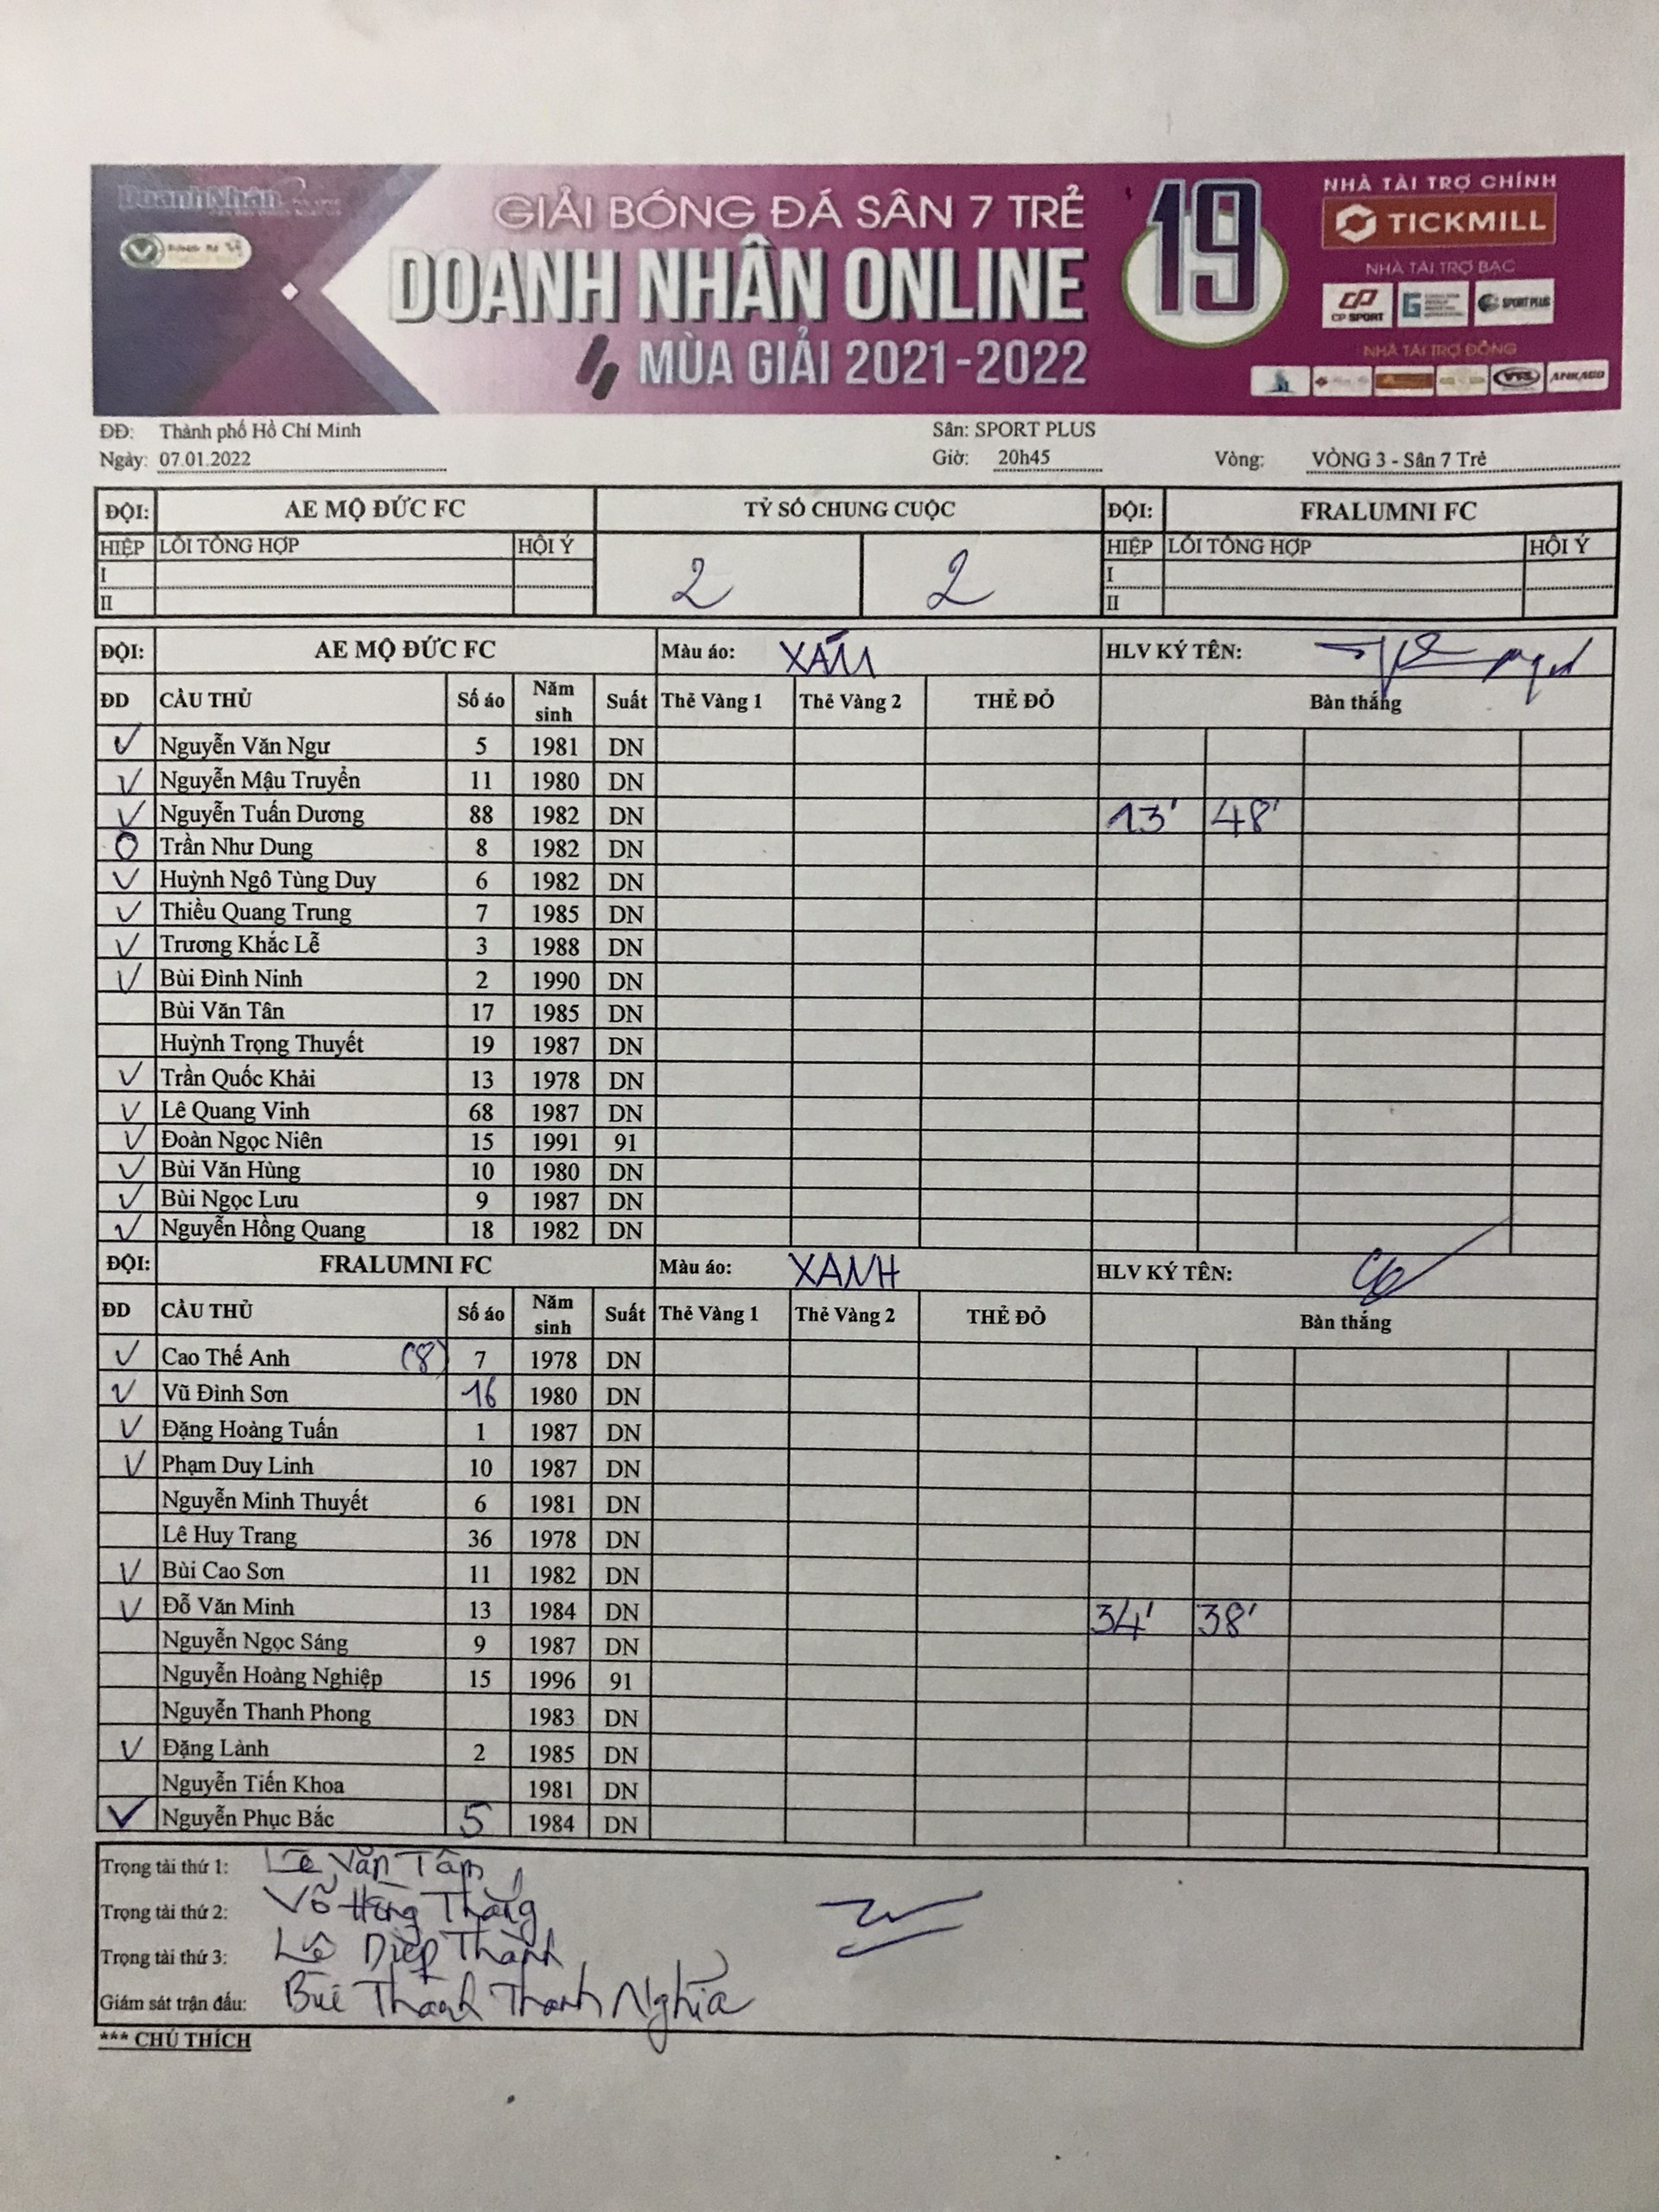 DoanhNhân
GIẢI BÓNG ĐÁ SÂN 7 TRẺ
DOANH NHÂN ONLINE
MÙA GIẢI 2021-2022
19
NHÀ TÀI TRỢ CHÍNH
TICKMILL
NHÀ TÀI TRỢ BẠC
CP SPORT SPORT PLUS
NHÀ TÀI TRỢ ĐỒNG
VTS ANKACO
ĐĐ: Thành phố Hồ Chí Minh Sân: SPORT PLUS
Ngày: 07.01.2022 Giờ: 20h45 Vòng: VÒNG 3 - Sân 7 Trẻ
ĐỘI: AE MỘ ĐỨC FC TỶ SỐ CHUNG CUỘC ĐỘI: FRALUMNI FC
HIỆP LỖI TỔNG HỢP HỘI Ý 2 2 HIỆP LỖI TỔNG HỢP HỘI Ý
I I
II II
ĐỘI: AE MỘ ĐỨC FC Màu áo: XÁM HLV KÝ TÊN:
ĐD CẦU THỦ Số áo Năm sinh Suất Thẻ Vàng 1 Thẻ Vàng 2 THẺ ĐỎ Bàn thắng
Nguyễn Văn Ngư 5 1981 DN
Nguyễn Mậu Truyền 11 1980 DN
Nguyễn Tuấn Dương 88 1982 DN 13' 48'
Trần Như Dung 8 1982 DN
Huỳnh Ngô Tùng Duy 6 1982 DN
Thiều Quang Trung 7 1985 DN
Trương Khắc Lễ 3 1988 DN
Bùi Đình Ninh 2 1990 DN
Bùi Văn Tân 17 1985 DN
Huỳnh Trọng Thuyết 19 1987 DN
Trần Quốc Khải 13 1978 DN
Lê Quang Vinh 68 1987 DN
Đoàn Ngọc Niên 15 1991 91
Bùi Văn Hùng 10 1980 DN
Bùi Ngọc Lưu 9 1987 DN
Nguyễn Hồng Quang 18 1982 DN
ĐỘI: FRALUMNI FC Màu áo: XANH HLV KÝ TÊN:
ĐD CẦU THỦ Số áo Năm sinh Suất Thẻ Vàng 1 Thẻ Vàng 2 THẺ ĐỎ Bàn thắng
Cao Thế Anh (8) 7 1978 DN
Vũ Đình Sơn 16 1980 DN
Đặng Hoàng Tuấn 1 1987 DN
Phạm Duy Linh 10 1987 DN
Nguyễn Minh Thuyết 6 1981 DN
Lê Huy Trang 36 1978 DN
Bùi Cao Sơn 11 1982 DN
Đỗ Văn Minh 13 1984 DN 34' 38'
Nguyễn Ngọc Sáng 9 1987 DN
Nguyễn Hoàng Nghiệp 15 1996 91
Nguyễn Thanh Phong 1983 DN
Đặng Lành 2 1985 DN
Nguyễn Tiến Khoa 1981 DN
Nguyễn Phục Bắc 5 1984 DN
Trọng tài thứ 1: Lê Văn Tâm
Trọng tài thứ 2: Võ Hùng Thắng
Trọng tài thứ 3: Lê Diệp Thành
Giám sát trận đấu: Bùi Thanh Thanh Nghĩa
*** CHÚ THÍCH